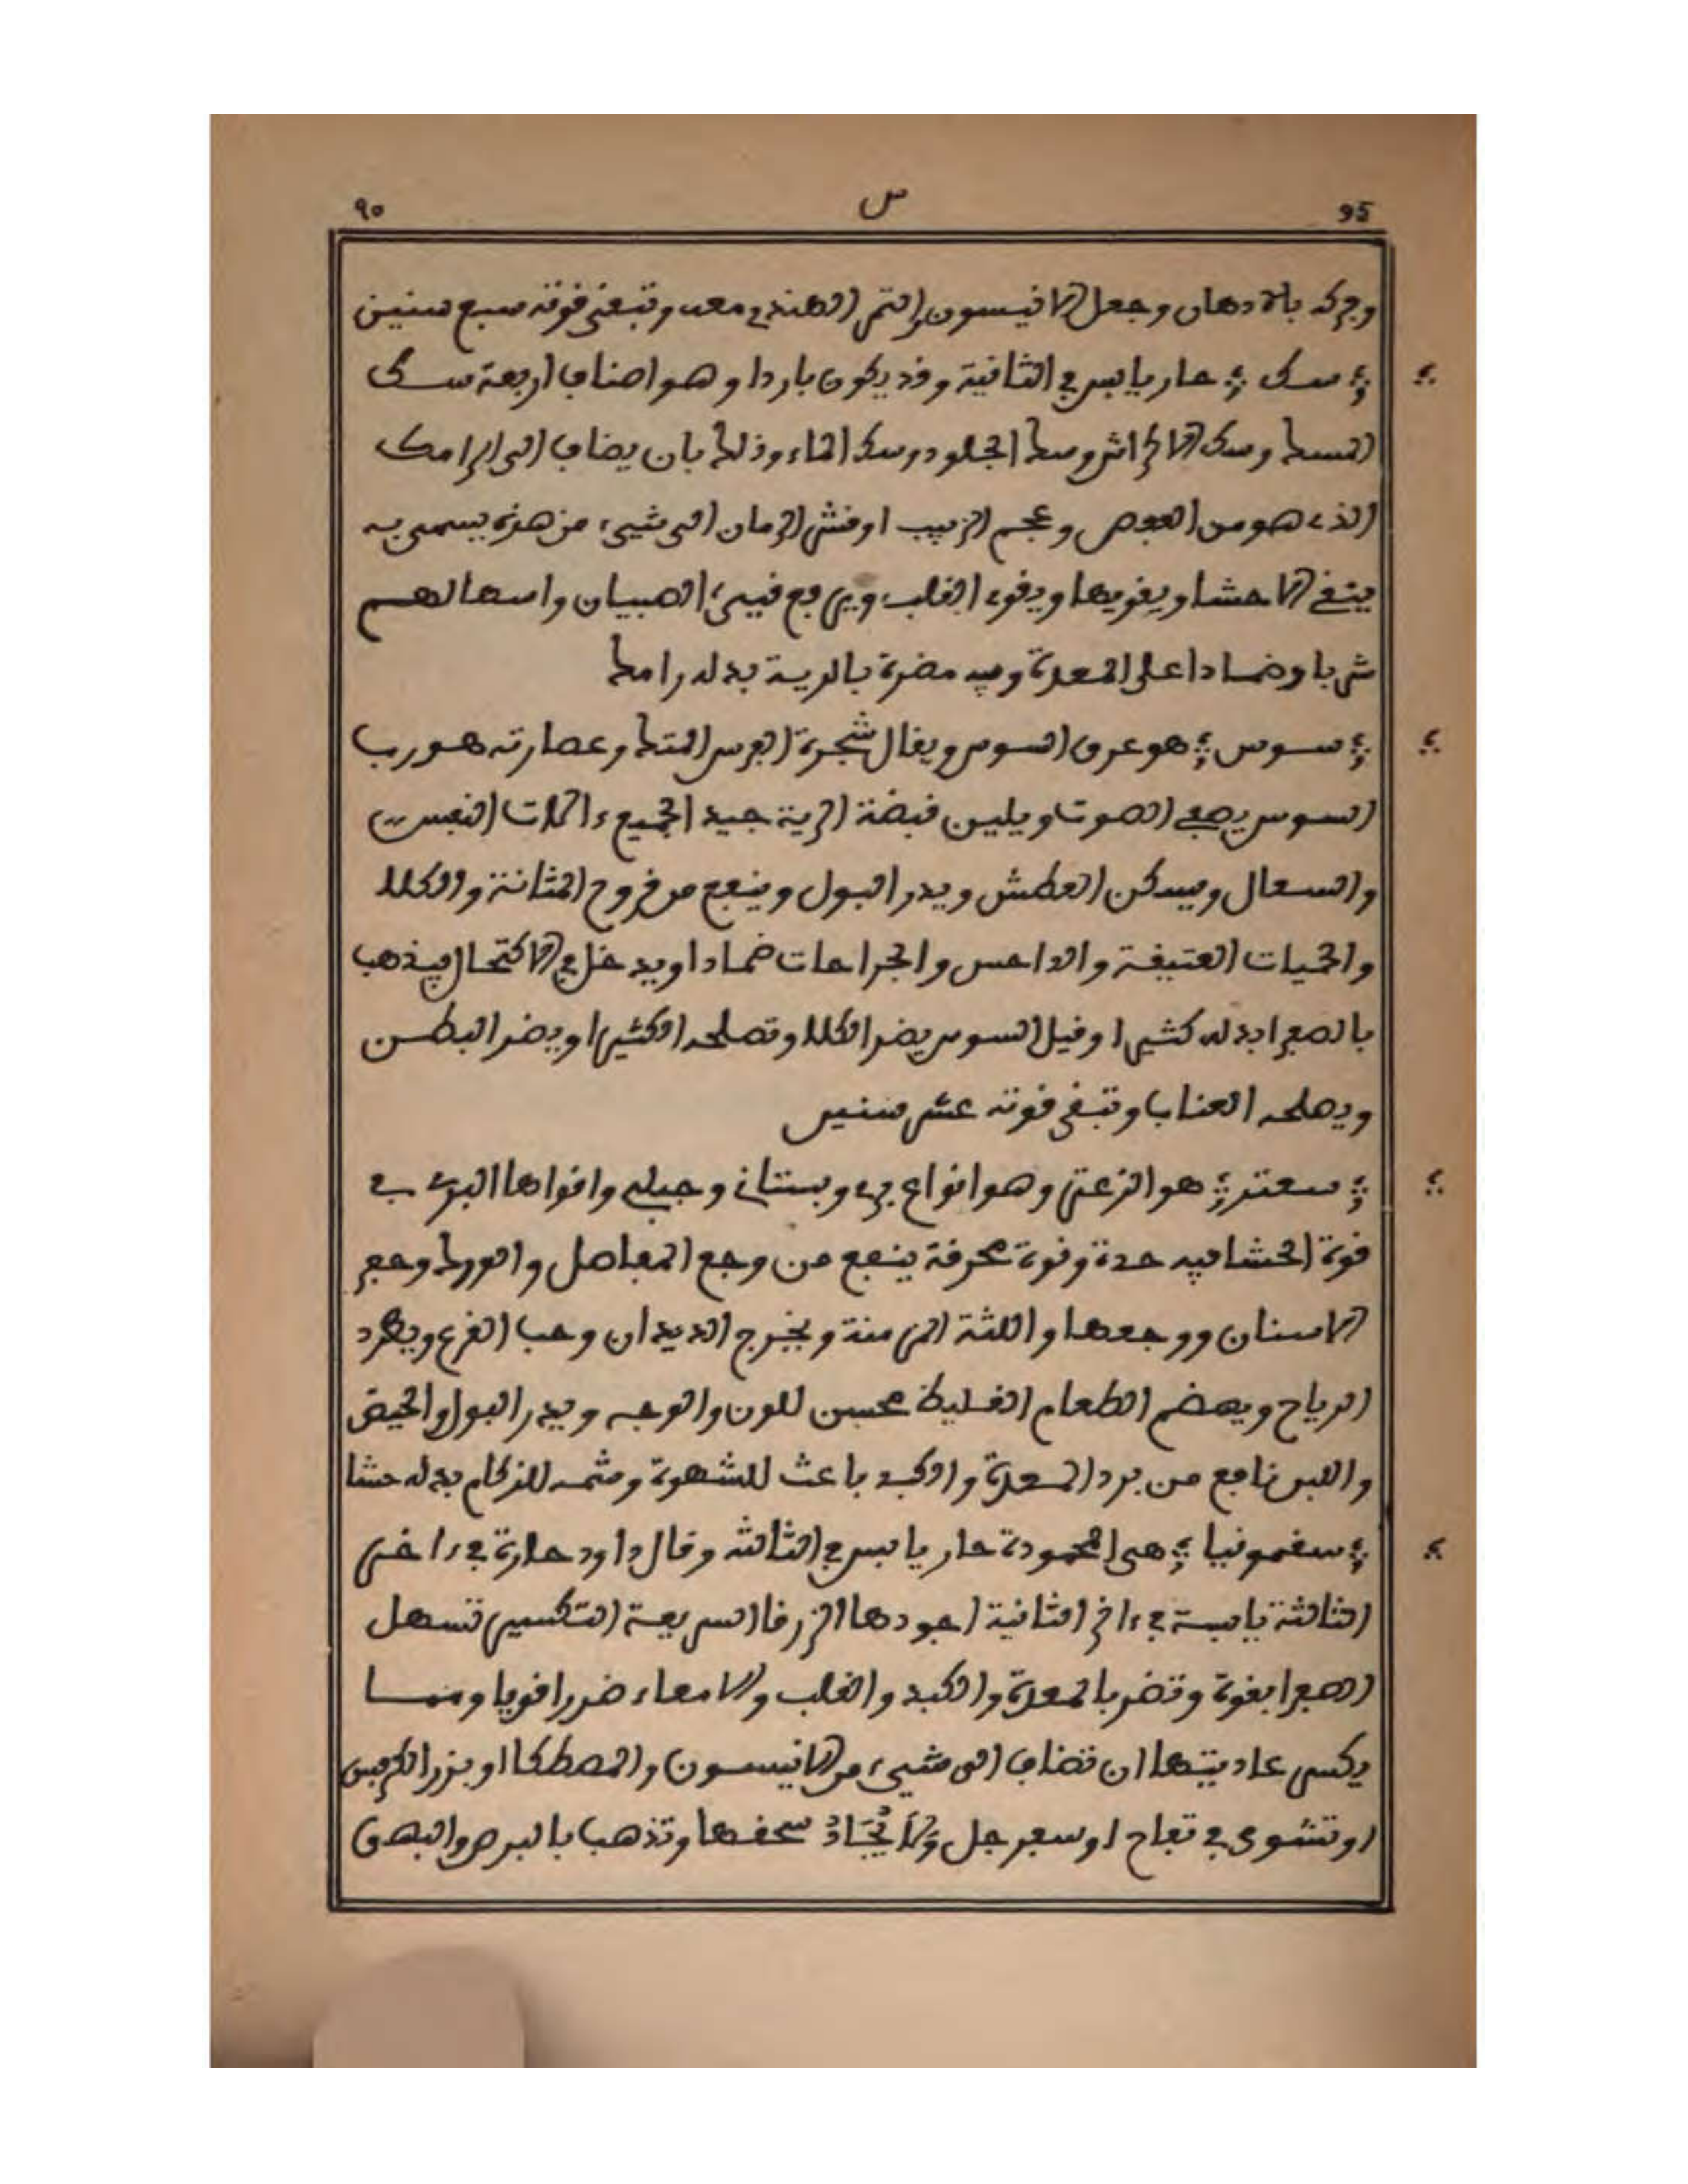 ٩٥ س 95
وفركه بالادهان وجعل الانيسون والتمر الهندي معه وتبقى قوته سبع سنين
سك حار يابس في الثانية وقد يكون باردا وهو اصناف اربعة سك
المسك وسك الاكراش وسك الجلود وسك الماء وذلك بان يضاف الى الرامك
الذي هو من العفص وعجم الزبيب او قشر الرمان الى شيء من هذه يسمى به
ينقي الاحشا ويقويها ويقوي القلب ويرفع قيىء الصبيان واسهالهم
شربا وضمادا على المعدة وفيه مضرة بالرية بدله رامك
سوس هو عرق السوس ويقال شجرة الفرس المتك وعصارته هو رب
السوس يصفي الصوت ويلين قبضة الرية جيد لجميع ءالات النفس
والسعال ويسكن العطش ويدر البول وينفع من قروح المثانة والكلا
والحميات العتيقة والداحس والجراحات ضمادا ويدخل في الاكتحال فيذهب
بالصفرا بدله كثيرا وقيل السوس يضر الكلا وتصلحه الكثيرا ويضر البطن
ويصلحه العناب وتبقى قوته عشر سنين
سعتر هو الزعتر وهو انواع بري وبستاني وجبلي واقواها البري في
قوة الحشا فيه حدة وقوة محرقة ينفع من وجع المفاصل والورك وحفر
الاسنان ووجعها واللثة المزمنة ويخرج الديدان وحب القرع ويطرد
الرياح ويهضم الطعام الغليظ محسن للون والوجه ويدر البول والحيض
واللبن نافع من برد المعدة والكبد باعث للشهوة وشمه للزكام بدله حشا
سقمونيا هي المحمودة حار يابس في الثالثة وقال داود حارة في ءاخر
الثالثة يابسة في ءاخر الثانية اجودها الزرقا السريعة التكسير تسهل
الصفرا بقوة وتضر بالمعدة والكبد والقلب والامعاء ضررا قويا ومما
يكسر عاديتها ان تضاف الى شيء من الانيسون والمصطكا او بزر الكرفس
او تشوى في تفاح او سفرجل وَلَا يُجَادُ سحقها وتذهب بالبرص والبهق